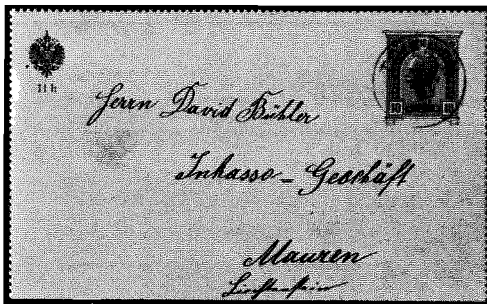 11 h
10 10
Herrn David Bühler
Inkasso - Geschäft
Mauren
Liechtenstein